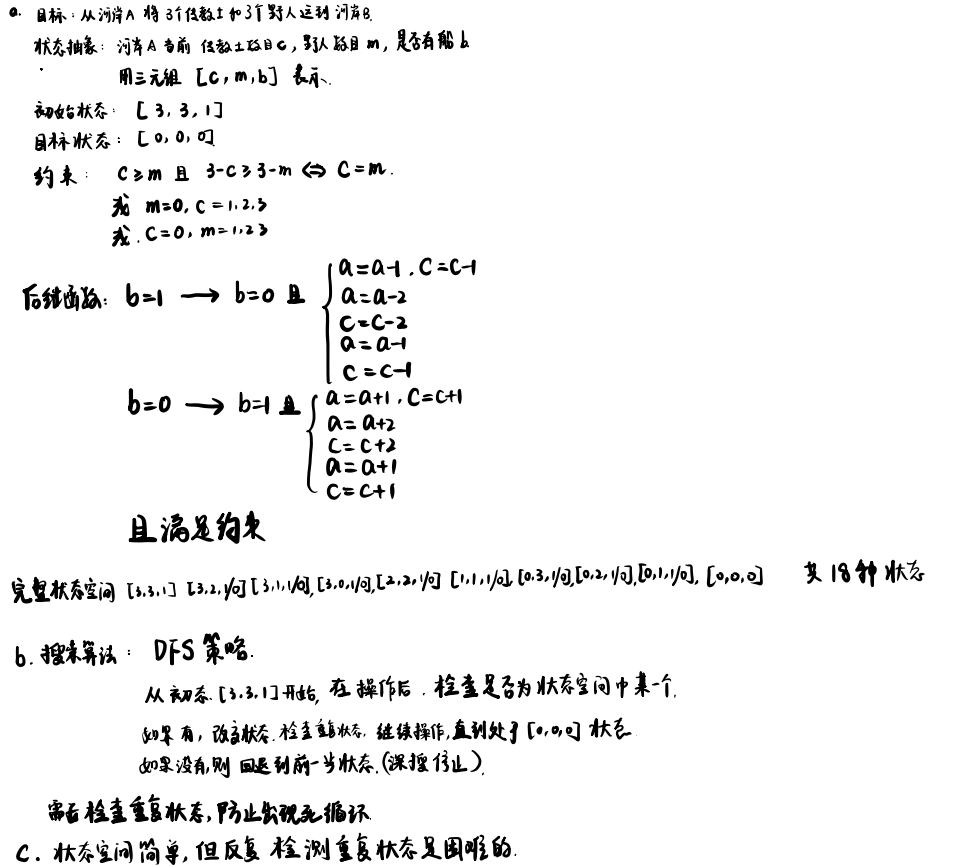 a. 目标：从河岸A 将3个传教士和3个野人运到河岸B.
状态抽象：河岸A 当前 传教士数目c，野人数目m，是否有船b
用三元组 [c, m, b] 表示.
初始状态： [3, 3, 1]
目标状态： [0, 0, 0]
约束： C≥m 且 3-C≥3-m ⇔ C=m.
或 m=0, C=1.2.3
或. C=0, m=1,2 3
后继函数： b=1 → b=0 且 { a=a-1 , C=C-1
a=a-2
C=C-2
a=a-1
C=C-1
b=0 → b=1 且 { a=a+1 , C=C+1
a=a+2
C=C+2
a=a+1
C=C+1
且满足约束
完整状态空间 [3.3.1] [3.2,1/0] [3,1,1/0], [3,0,1/0], [2,2,1/0] [1,1,1/0], [0.3,1/0], [0,2,1/0], [0,1,1/0], [0,0,0] 共18种状态
b. 搜索算法： DFS 策略.
从初态 [3.3.1] 开始, 在操作后. 检查是否为状态空间中某一个.
如果有，改变状态. 检查重复状态. 继续操作, 直到处于 [0,0,0] 状态
如果没有, 则 回退到前一步状态. (深搜停止).
需要检查重复状态, 防止出现死循环.
C. 状态空间简单, 但反复检测重复状态是困难的.